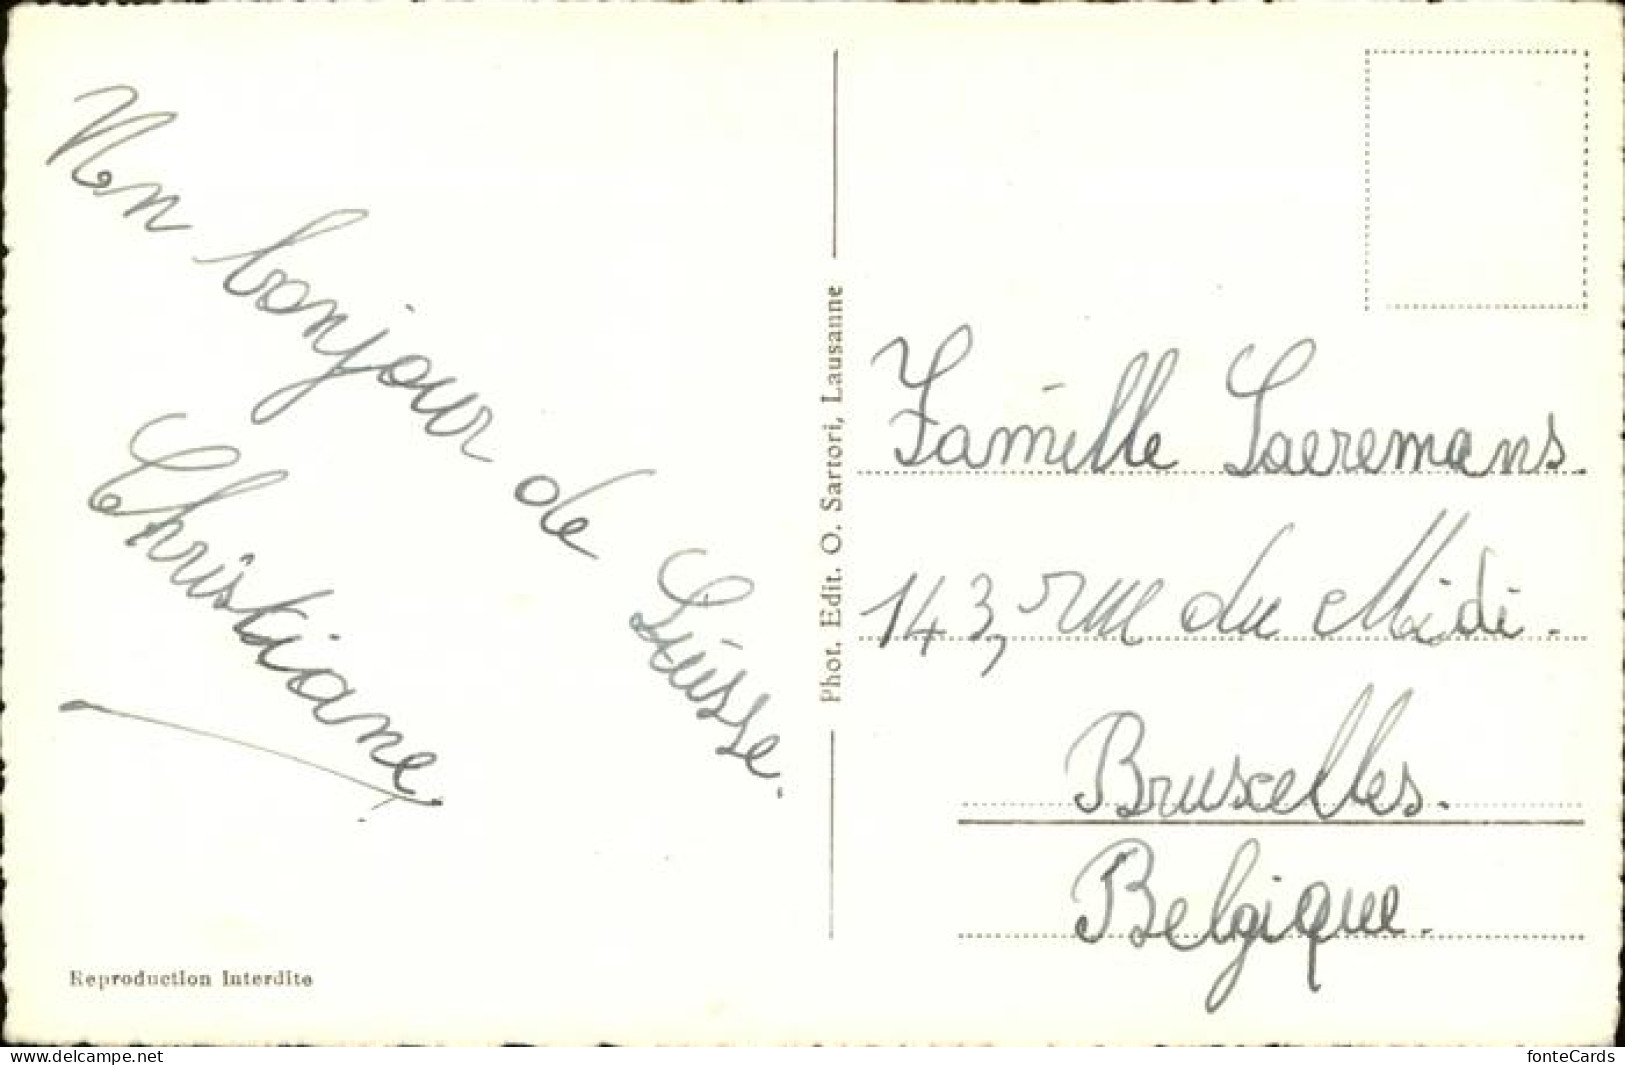 Mon bonjour de Suisse.
Christiane
Reproduction Interdite
Phot. Edit. O. Sartori, Lausanne
Famille Saeremans.
143, rue du Midi.
Bruxelles.
Belgique.
www.delcampe.net
fonteCards